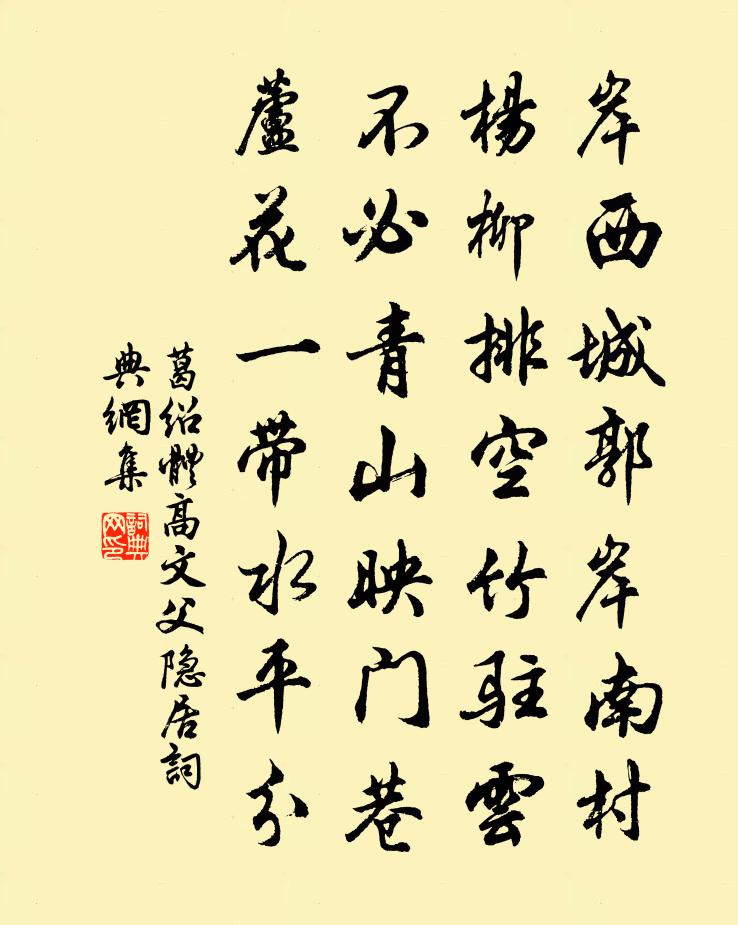 岸西城郭岸南村
楊柳排空竹駐雲
不必青山映門巷
蘆花一帶水平分
葛紹體高文父隐居詞
典網集
詞典
网印